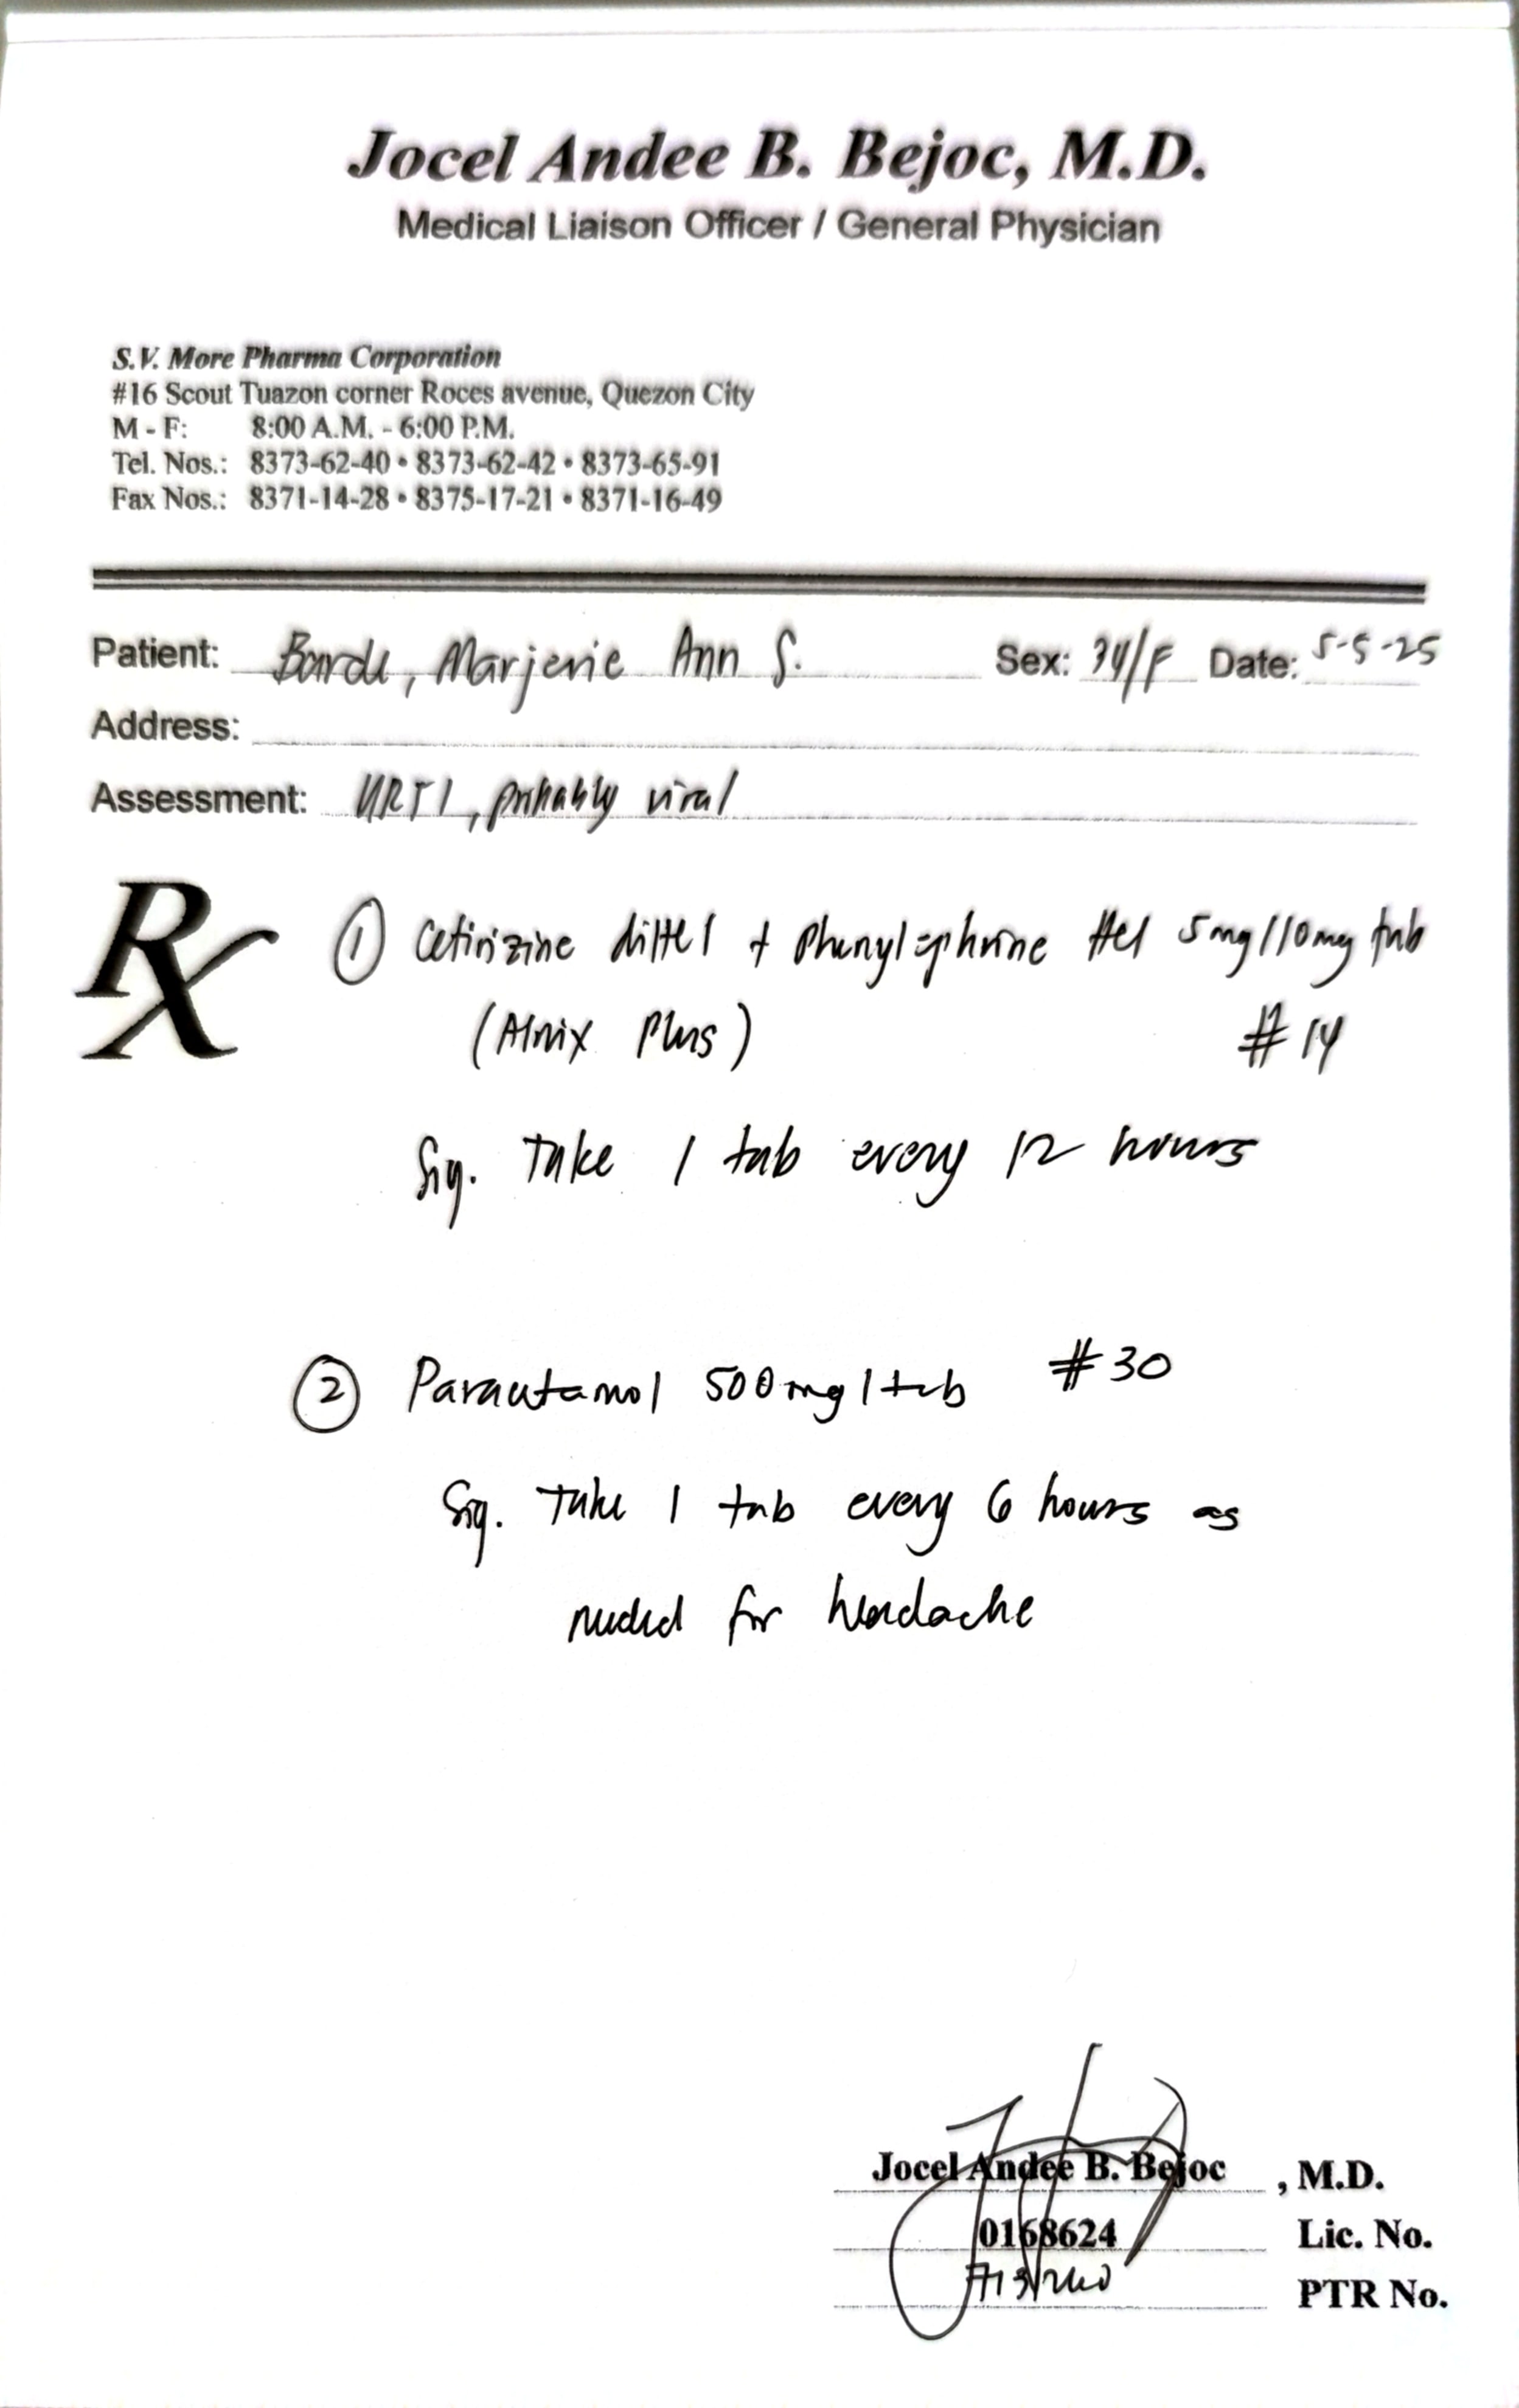 Jocel Andee B. Bejoc, M.D.
Medical Liaison Officer / General Physician
S.V. More Pharma Corporation
#16 Scout Tuazon corner Roces avenue, Quezon City
M - F: 8:00 A.M. - 6:00 P.M.
Tel. Nos.: 8373-62-40 • 8373-62-42 • 8373-65-91
Fax Nos.: 8371-14-28 • 8375-17-21 • 8371-16-49
Patient: Marjorie Ann S. Sex: 34/F Date: 5-5-25
Address:
Assessment: URTI, probably viral
Rx
1 Cetirizine diHCl + Phenylephrine HCl 5mg/10mg tab
(Alnix Plus) #14
Sig. Take 1 tab every 12 hours
2 Paracetamol 500mg/tab #30
Sig. Take 1 tab every 6 hours as
needed for headache
Jocel Andee B. Bejoc , M.D.
0168624 Lic. No.
PTR No.